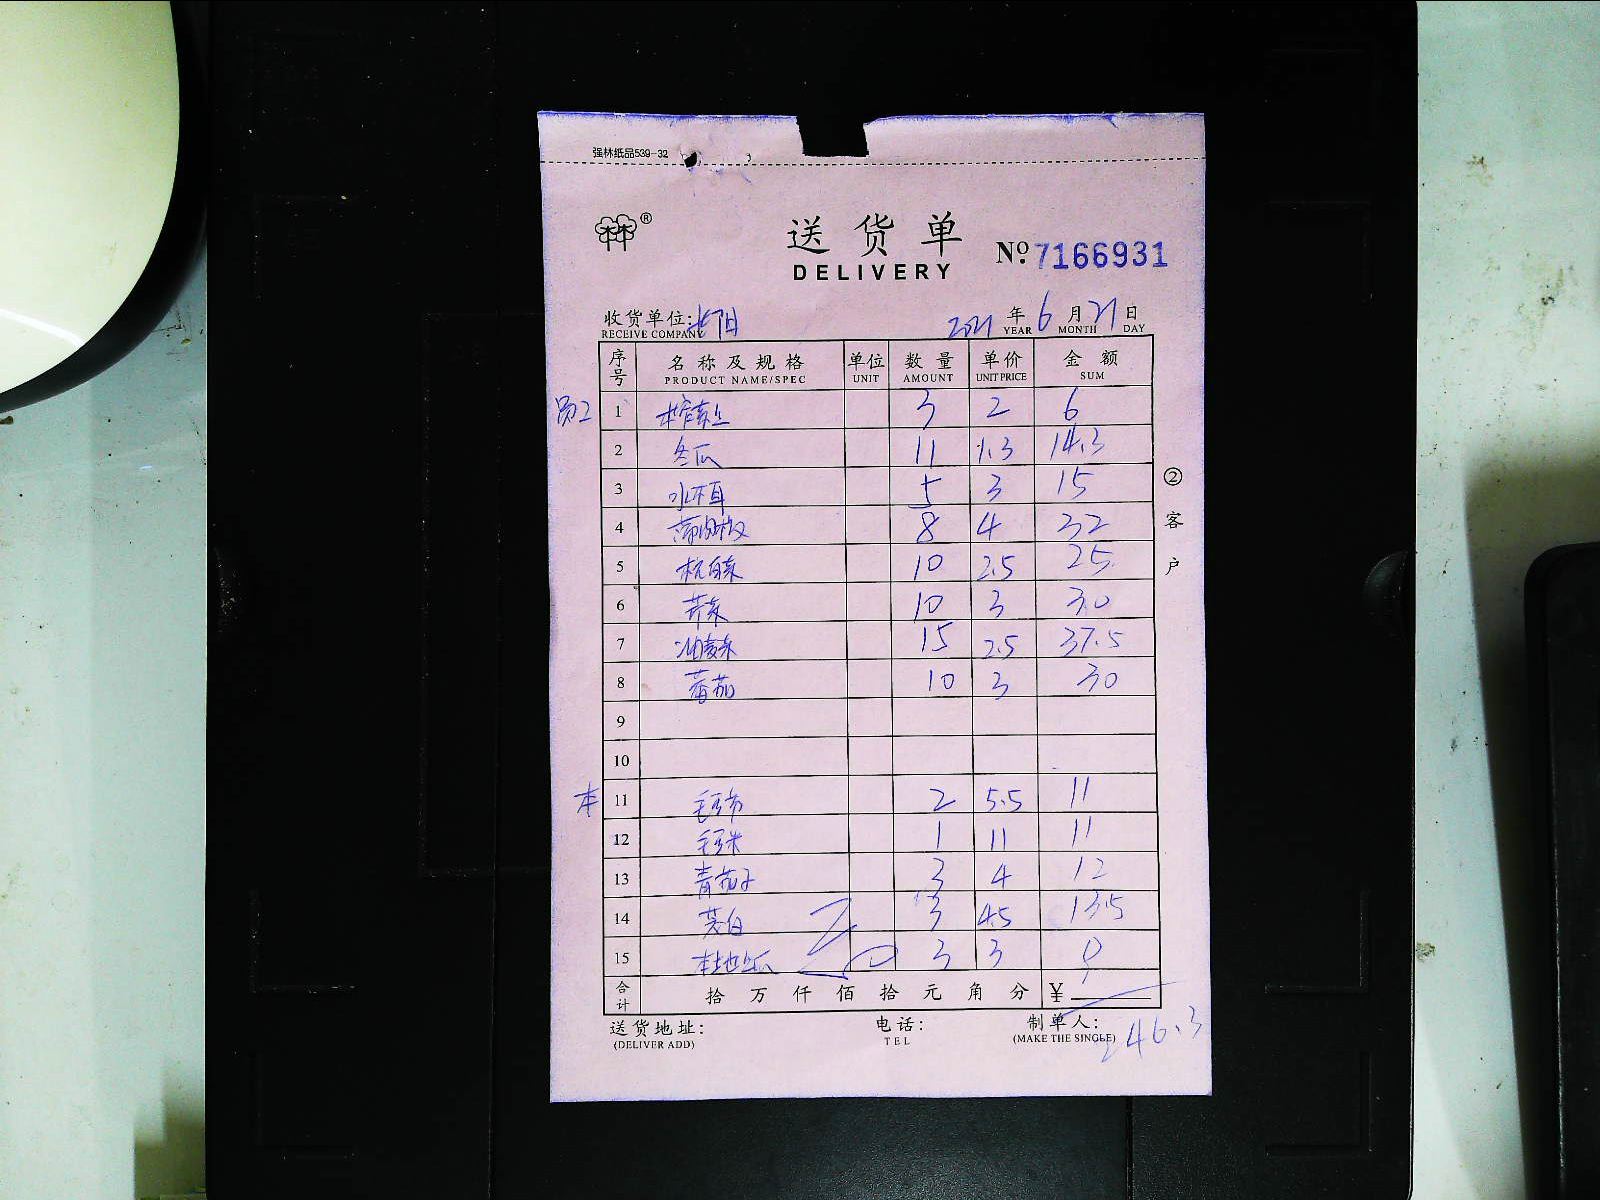 强林纸品539-32
送货单
DELIVERY
№:7166931
收货单位:
RECEIVE COMPANY
2021年6月21日
YEAR MONTH DAY
序号 名称及规格 单位 数量 单价 金额
PRODUCT NAME/SPEC UNIT AMOUNT UNIT PRICE SUM
员工 1 榨菜丝 3 2 6
2 冬瓜 11 1.3 14.3
3 水木耳 5 3 15
4 8 4 32
5 杭白菜 10 2.5 25
6 芹菜 10 3 30
7 油麦菜 15 2.5 37.5
8 番茄 10 3 30
9
10
本 11 毛豆节 2 5.5 11
12 毛豆米 1 11 11
13 青茄子 3 4 12
14 茭白 3 4.5 13.5
15 本地丝瓜 3 3 9
合计 拾万仟佰拾元角分 ¥
246.3
送货地址: 电话: 制单人:
(DELIVER ADD) TEL (MAKE THE SINGLE)
②客户